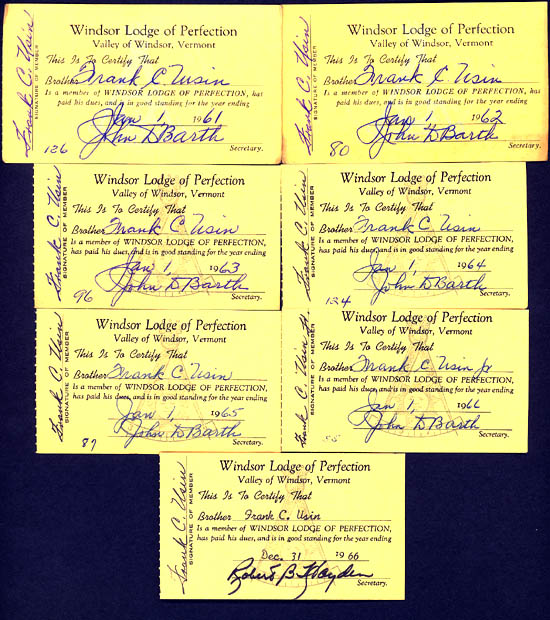 Frank C. Usin
SIGNATURE OF MEMBER
Windsor Lodge of Perfection
Valley of Windsor, Vermont
This Is To Certify That
Brother Frank C Usin
Is a member of WINDSOR LODGE OF PERFECTION, has
paid his dues, and is in good standing for the year ending
Jan 1 1961
John D Barth
126 Secretary.
Frank C. Usin
SIGNATURE OF MEMBER
Windsor Lodge of Perfection
Valley of Windsor, Vermont
This Is To Certify That
Brother Frank C Usin
Is a member of WINDSOR LODGE OF PERFECTION, has
paid his dues, and is in good standing for the year ending
Jan 1 1962
John D Barth
80 Secretary.
Frank C. Usin
SIGNATURE OF MEMBER
Windsor Lodge of Perfection
Valley of Windsor, Vermont
This Is To Certify That
Brother Frank C. Usin
Is a member of WINDSOR LODGE OF PERFECTION,
has paid his dues, and is in good standing for the year ending
Jan 1, 1963
John D Barth
96 Secretary.
Frank C. Usin
SIGNATURE OF MEMBER
Windsor Lodge of Perfection
Valley of Windsor, Vermont
This Is To Certify That
Brother Frank C. Usin
Is a member of WINDSOR LODGE OF PERFECTION,
has paid his dues, and is in good standing for the year ending
Jan 1, 1964
John D Barth
134 Secretary.
Frank C. Usin
SIGNATURE OF MEMBER
Windsor Lodge of Perfection
Valley of Windsor, Vermont
This Is To Certify That
Brother Frank C. Usin
Is a member of WINDSOR LODGE OF PERFECTION,
has paid his dues, and is in good standing for the year ending
Jan 1, 1965
John D Barth
87 Secretary.
Frank C. Usin Jr.
SIGNATURE OF MEMBER
Windsor Lodge of Perfection
Valley of Windsor, Vermont
This Is To Certify That
Brother Frank C Usin Jr
Is a member of WINDSOR LODGE OF PERFECTION,
has paid his dues, and is in good standing for the year ending
Jan 1, 1966
John D Barth
Secretary.
Frank C. Usin
SIGNATURE OF MEMBER
Windsor Lodge of Perfection
Valley of Windsor, Vermont
This Is To Certify That
Brother Frank C. Usin
Is a member of WINDSOR LODGE OF PERFECTION,
has paid his dues, and is in good standing for the year ending
Dec. 31 1966
Robert B. Hayden
Secretary.